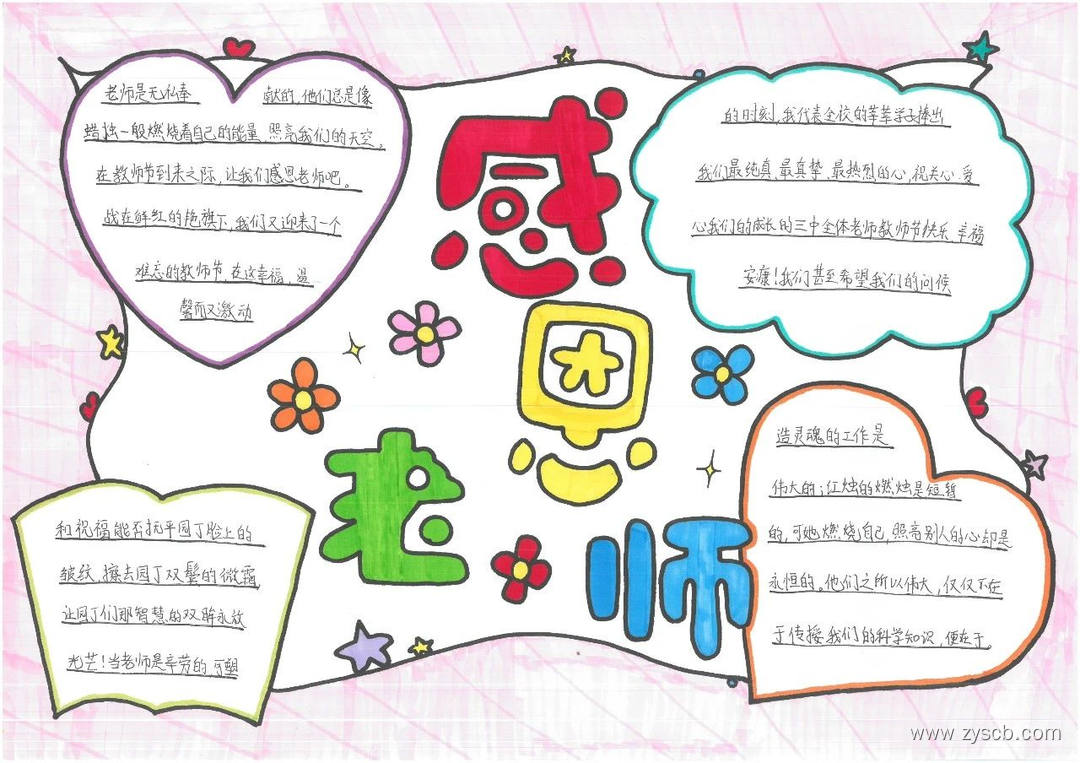 感恩老师
老师是无私奉献的,他们总是像
蜡烛一般燃烧着自己的能量,照亮我们的天空。
在教师节到来之际,让我们感恩老师吧。
战在鲜红的旗下,我们又迎来了一个
难忘的教师节,在这幸福,温
馨而又激动
的时刻,我代表全校的莘莘学子捧出
我们最纯真、最真挚、最热烈的心,祝关心、爱
心我们的成长的三中全体老师教师节快乐,幸福
安康!我们甚至希望我们的问候
和祝福能否抚平园丁脸上的
皱纹,擦去园丁双鬓的微霜,
让园丁们那智慧的双眸永放
光芒!当老师是辛劳的,可塑
造灵魂的工作是
伟大的;红烛的燃烛是短暂
的,可她燃烧自己,照亮别人的心却是
永恒的。他们之所以伟大,仅仅不在
于传授我们的科学知识,便在于。
www.zyscb.com